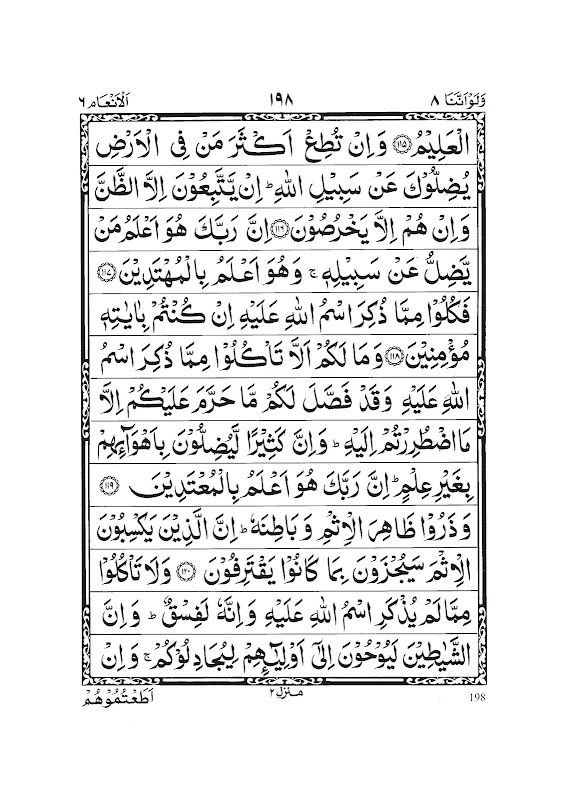 وَلَوْ اَنَّنَا ٨ ١٩٨ اَلْاَنْعَام ٦
الْعَلِيْمُ ﴿١١٥﴾ وَاِنْ تُطِعْ اَكْثَرَ مَنْ فِى الْاَرْضِ
يُضِلُّوْكَ عَنْ سَبِيْلِ اللّٰهِ ؕ اِنْ يَّتَّبِعُوْنَ اِلَّا الظَّنَّ
وَاِنْ هُمْ اِلَّا يَخْرُصُوْنَ ﴿١١٦﴾ اِنَّ رَبَّكَ هُوَ اَعْلَمُ مَنْ
يَّضِلُّ عَنْ سَبِيْلِهٖ ۚ وَهُوَ اَعْلَمُ بِالْمُهْتَدِيْنَ ﴿١١٧﴾
فَكُلُوْا مِمَّا ذُكِرَ اسْمُ اللّٰهِ عَلَيْهِ اِنْ كُنْتُمْ بِاٰيٰتِهٖ
مُؤْمِنِيْنَ ﴿١١٨﴾ وَمَا لَكُمْ اَلَّا تَاْكُلُوْا مِمَّا ذُكِرَ اسْمُ
اللّٰهِ عَلَيْهِ وَقَدْ فَصَّلَ لَكُمْ مَّا حَرَّمَ عَلَيْكُمْ اِلَّا
مَا اضْطُرِرْتُمْ اِلَيْهِ ؕ وَاِنَّ كَثِيْرًا لَّيُضِلُّوْنَ بِاَهْوَآئِهِمْ
بِغَيْرِ عِلْمٍ ؕ اِنَّ رَبَّكَ هُوَ اَعْلَمُ بِالْمُعْتَدِيْنَ ﴿١١٩﴾
وَذَرُوْا ظَاهِرَ الْاِثْمِ وَبَاطِنَهٗ ؕ اِنَّ الَّذِيْنَ يَكْسِبُوْنَ
الْاِثْمَ سَيُجْزَوْنَ بِمَا كَانُوْا يَقْتَرِفُوْنَ ﴿١٢٠﴾ وَلَا تَاْكُلُوْا
مِمَّا لَمْ يُذْكَرِ اسْمُ اللّٰهِ عَلَيْهِ وَاِنَّهٗ لَفِسْقٌ ؕ وَاِنَّ
الشَّيٰطِيْنَ لَيُوْحُوْنَ اِلٰٓى اَوْلِيٰٓئِهِمْ لِيُجَادِلُوْكُمْ ۚ وَاِنْ
198 منزل ٢ اَطَعْتُمُوْهُمْ